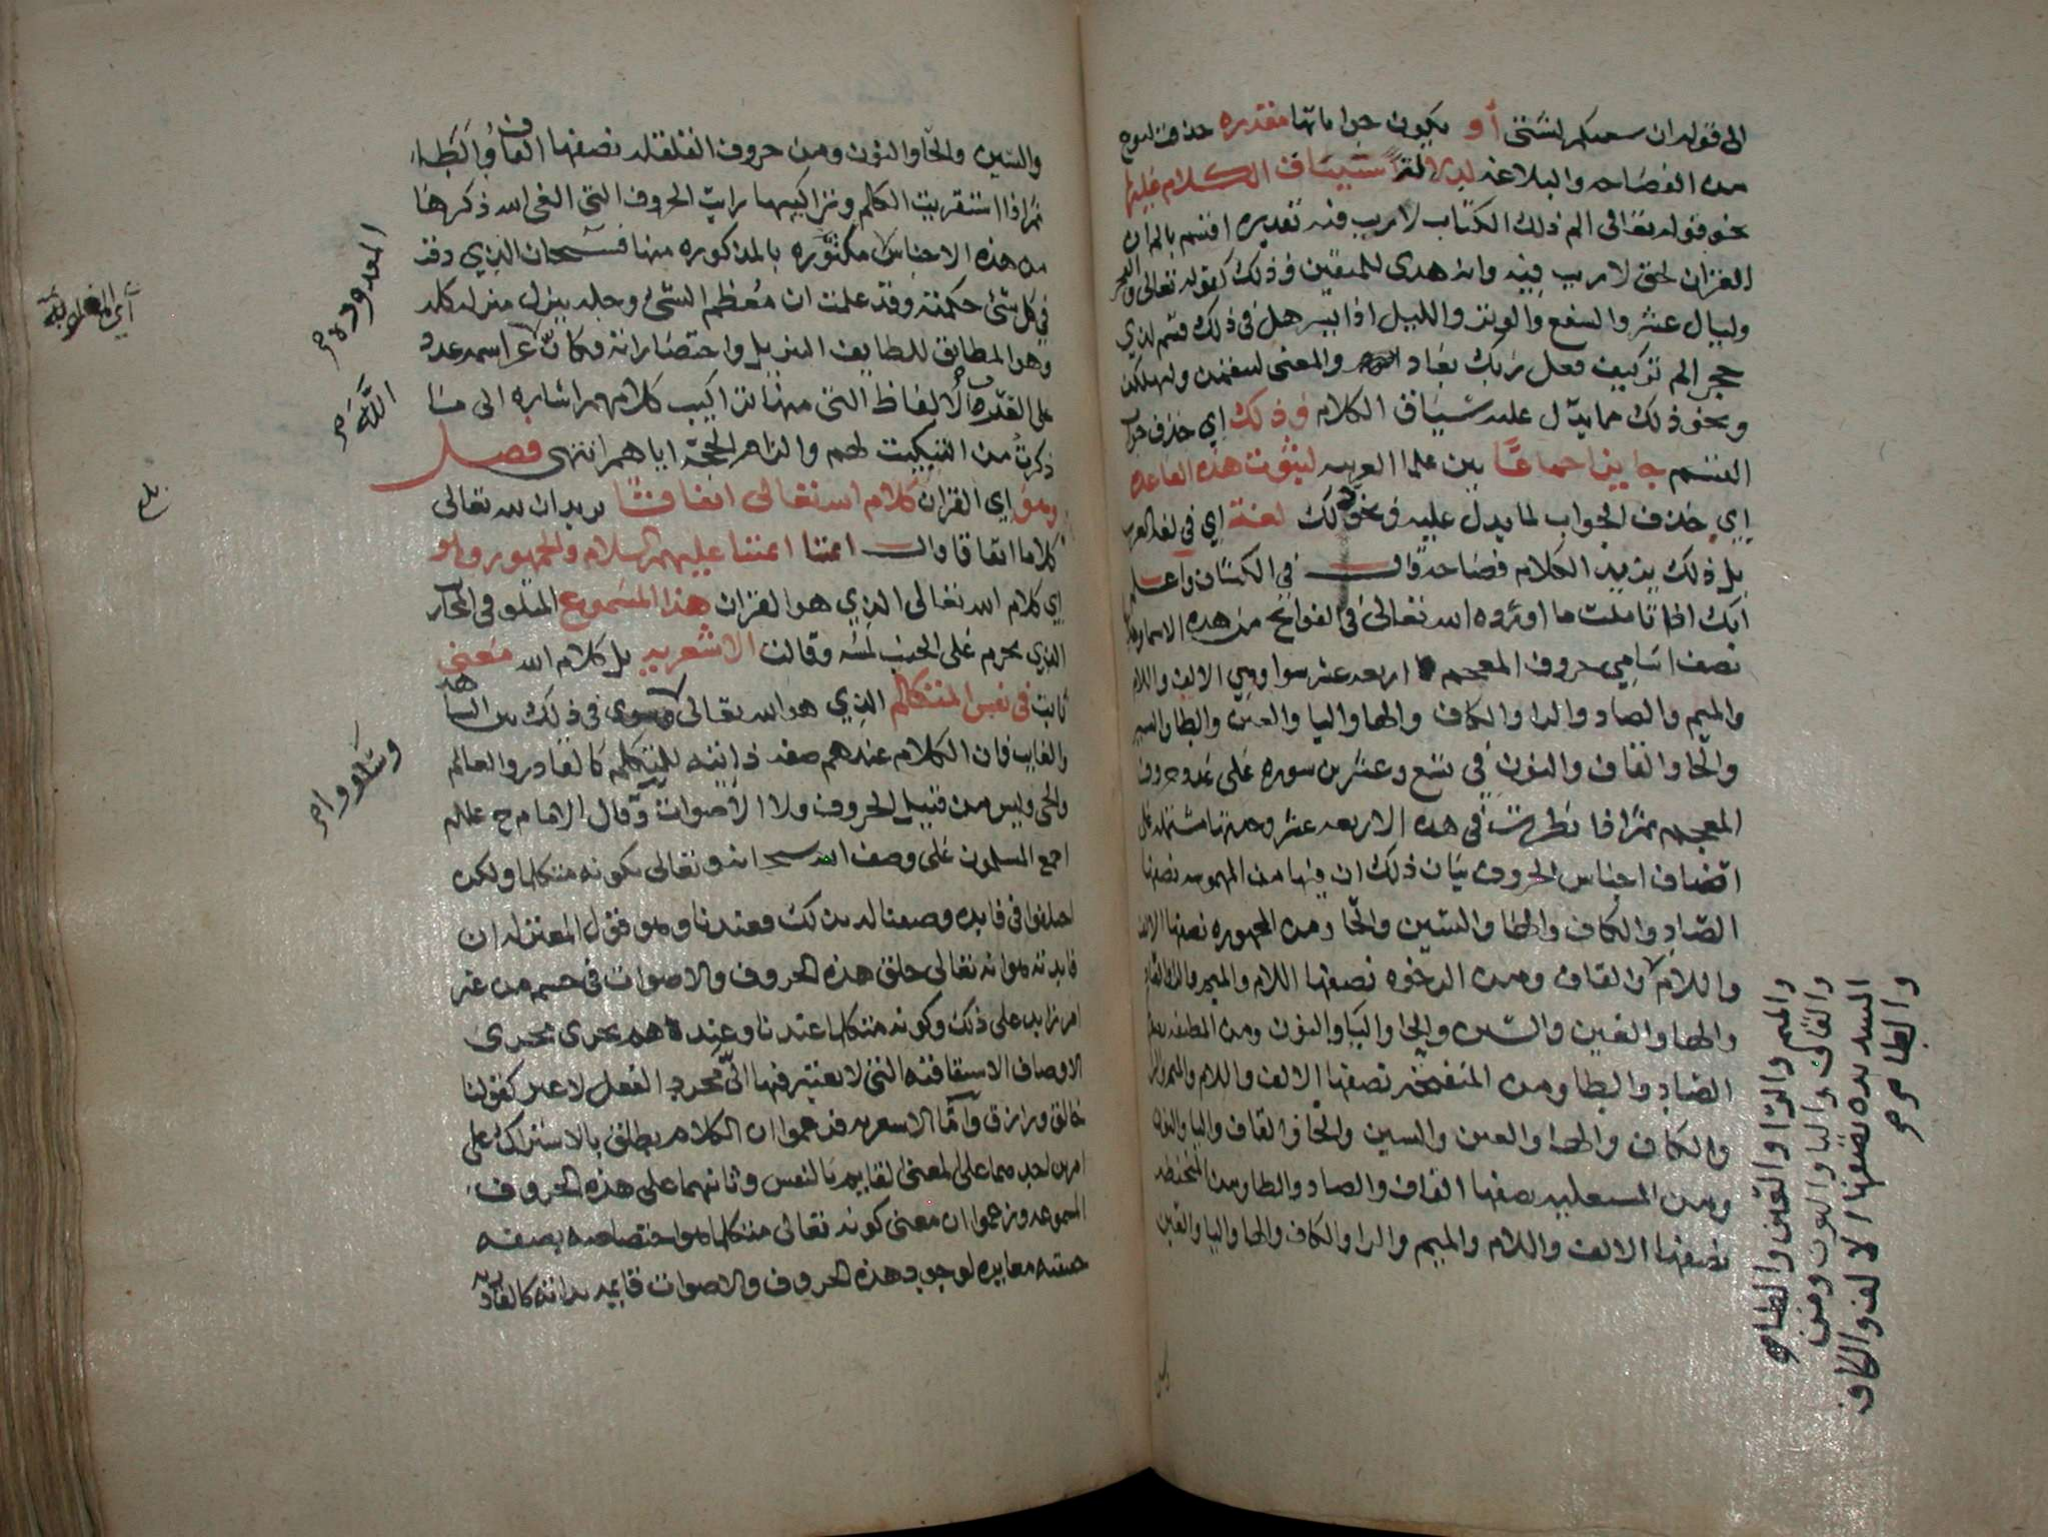 الى قوله ان سعيكم لشتى أو يكون جواباتها مقدره حذفت لنوع
من الفصاحه والبلاغه لدلالة سياق الكلام عليها
نحو قوله تعالى الم ذلك الكتاب لا ريب فيه تقديره اقسم بالم ان
القران لحق لا ريب فيه وانه هدى للمتقين وذلك كقوله تعالى والفجر
وليال عشر والشفع والوتر والليل اذا يسر هل في ذلك قسم لذي
حجر الم تر كيف فعل ربك بعاد والمعنى ليعذبن وليهلكن
ونحو ذلك مما يدل عليه سياق الكلام وذلك اي حذف جواب
القسم جايز اجماعًا بين علما العربيه لثبوت هذه القاعده
اي حذف الجواب لما يدل عليه ونحو ذلك لغة اي في لغه العرب
بل ذلك يزيد الكلام فصاحة وقال في الكشاف واعلم
انك اذا تاملت ما اورده الله تعالى في الفواتح من هذه الاسما وجدتها
نصف اسامي حروف المعجم اربعه عشر سوا وهي الالف واللام
والميم والصاد والرا والكاف والها واليا والعين والطا والسين
والحا والقاف والنون في تسع وعشرين سوره على عدد حروف
المعجم ثم اذا نظرت في هذه الاربعه عشر وجدتها مشتمله على
انصاف اجناس الحروف بيان ذلك ان فيها من المهموسه نصفها
الصاد والكاف والها والسين والحا ومن المجهوره نصفها الالف
واللام والقاف ومن الرخوه نصفها اللام والميم والرا والصاد
والها والعين والسين والحا واليا والنون ومن المطبقه نصفها
الصاد والطا ومن المنفتحه نصفها الالف واللام والميم والرا
والكاف والها والعين والسين والحا والقاف واليا والنون
ومن المستعليه نصفها القاف والصاد والطا ومن المنخفضه
نصفها الالف واللام والميم والرا والكاف والها واليا والعين
والميم والرا والعين والطا
والقاف واليا والنون ومن
الشديده نصفها الالف والكاف
والطا
والسين والحا والنون ومن حروف القلقله نصفها القاف والطا
ثم اذا استقريت الكلم وتراكيبها رايت الحروف التي الغى الله ذكرها
من هذه الاجناس مكثوره بالمذكوره منها فسبحان الذي دقت
في كل شئ حكمته وقد علمت ان معظم الشئ وجله ينزل منزله كله
وهو المطابق للطايف التنزيل واختصاراته فكان الله عز اسمه عدد
على العرب الالفاظ التي منها تراكيب كلامهم اشاره الى ما
ذكرت من التبكيت لهم والزام الحجة اياهم انتهى فصل
وهو اي القران كلام الله تعالى اتفاقًا يريد ان لله تعالى
كلاما اتفاقا وقالت ائمتنا عليهم السلام والجمهور وهو
اي كلام الله تعالى الذي هو القران هذا المسموع المتلو في المحاريب
الذي يحرم على الجنب لمسه وقالت الاشعريه بل كلام الله معنى
ثابت في نفس المتكلم الذي هو الله تعالى في ذلك بين الشاهد
والغايب فان الكلام عندهم صفه ذاتية للمتكلم كالقادر والعالم
والحي وليس من قبيل الحروف ولا الاصوات وقال الامام ح عللم
اجمع المسلمون على وصف الله سبحانه وتعالى بكونه متكلما ولكن
اختلفوا في فايده وصفنا له بذلك فعندنا وهو قول المعتزله ان
فايدته هو انه تعالى خلق هذه الحروف والاصوات في جسم من غير
امر زايد على ذلك وكونه متكلما عندنا وعندهم يجري مجرى
الاوصاف الاشتقاقيه التي لا يعتبر فيها الى مجرد الفعل لا غير كقولنا
خالق ورازق واما الاشعريه فزعموا ان الكلام يطلق بالاشتراك على
امرين احدهما على المعنى القايم بالنفس وثانيهما على هذه الحروف
المسموعه وزعموا ان معنى كونه تعالى متكلما هو اختصاصه بصفه
حقيقيه مغايره لوجود هذه الحروف والاصوات قايمه بذاته كالقادريه
المعدوده
الله
وسووا
بل